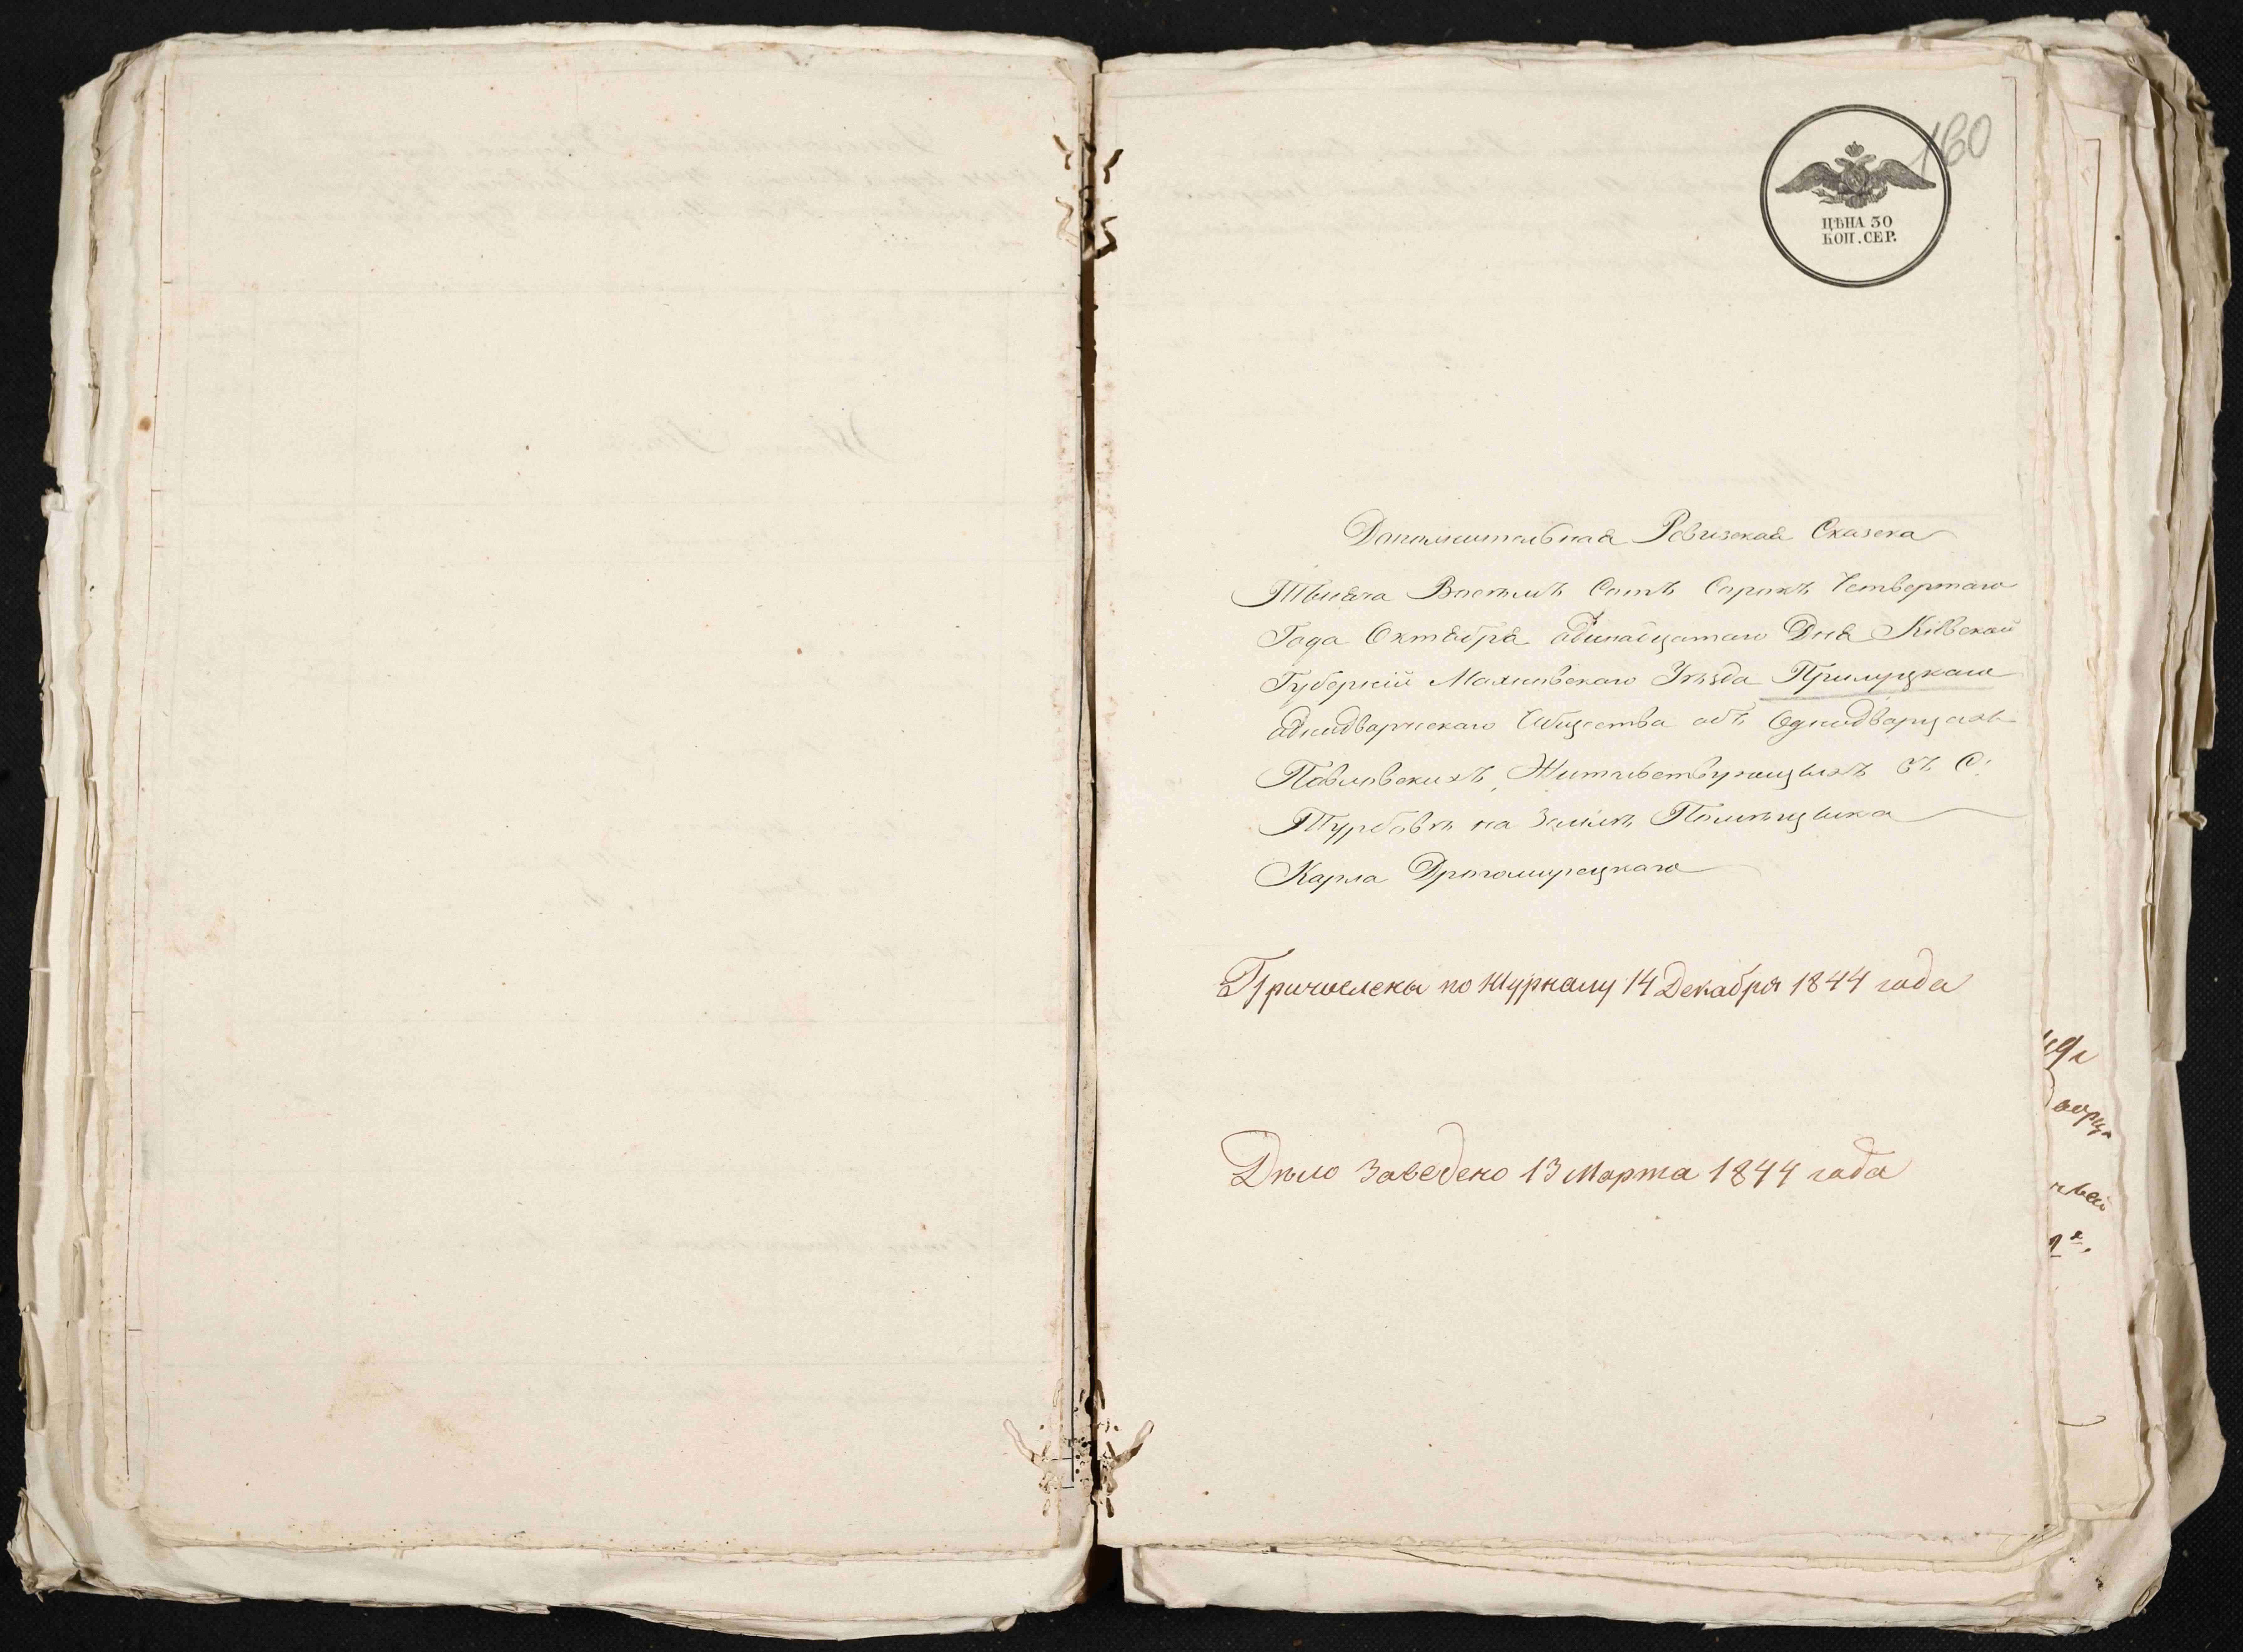 160
ЦѢНА 30
КОП. СЕР.
Дополнительная Ревизская Сказска
Тысяча Восемъ Сотъ Сорокъ Четвертаго
Года Октября адинадцатаго Дня Кіевской
Губерніи Махновскаго Уѣзда Прилуцкаго
аднодворческаго Общества объ Однодворцахъ
Павловскихъ, Жительствующихъ въ С:
Турбовѣ на Землѣ Помѣщыка
Карла Дрогомирецкаго
Причислены по Журналу 14 Декабря 1844 года
Дѣло Заведено 13 Марта 1844 года